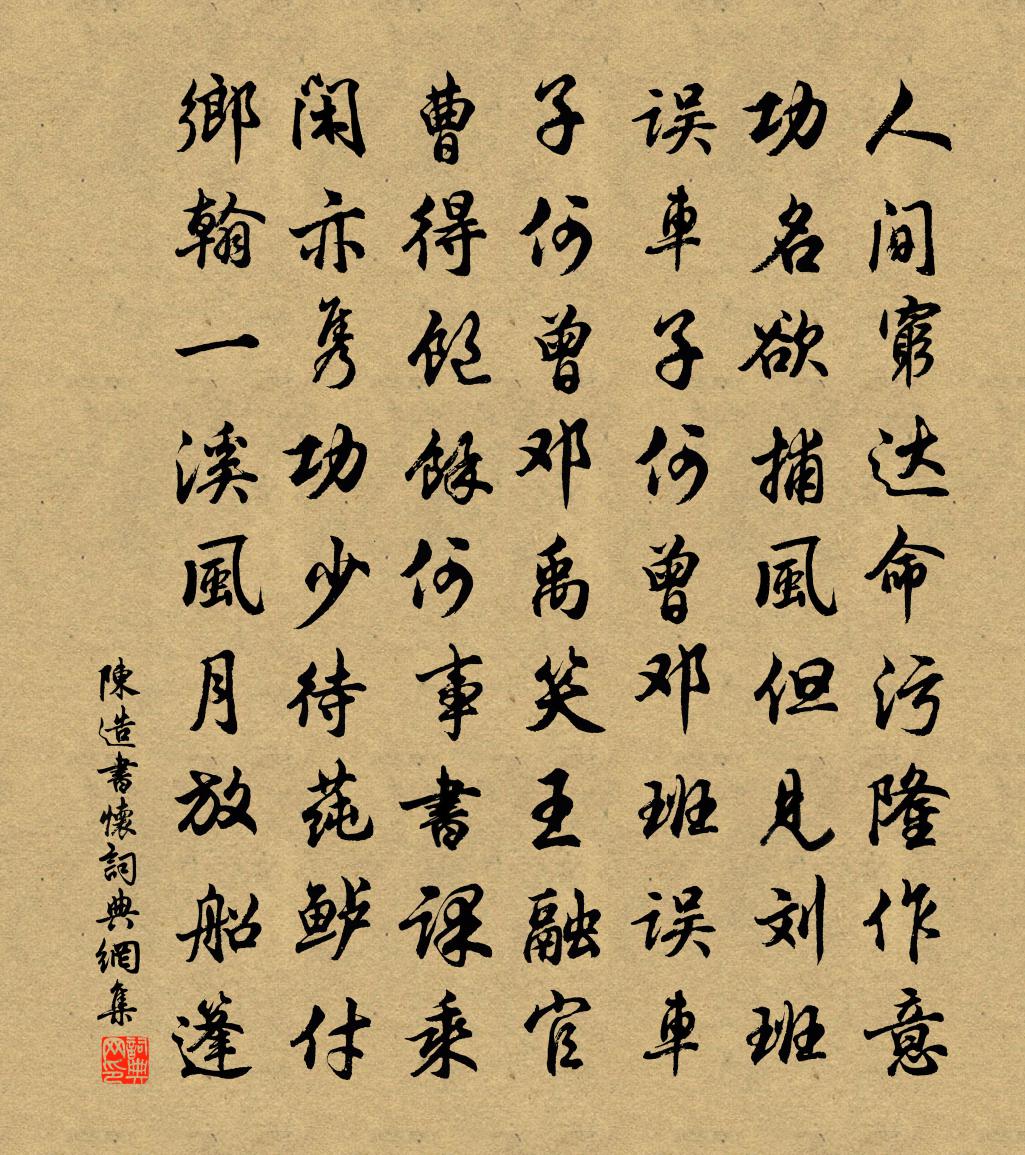 人间窮达命污隆作意
功名欲捕風但见刘班
误車子何曾邓班误車
子何曾邓禹笑王融官
曹得饱馀何事書课乘
闲亦隽功少待莼鲈付
鄉翰一溪風月放船蓬
陳造書懷詞典網集
詞典网印